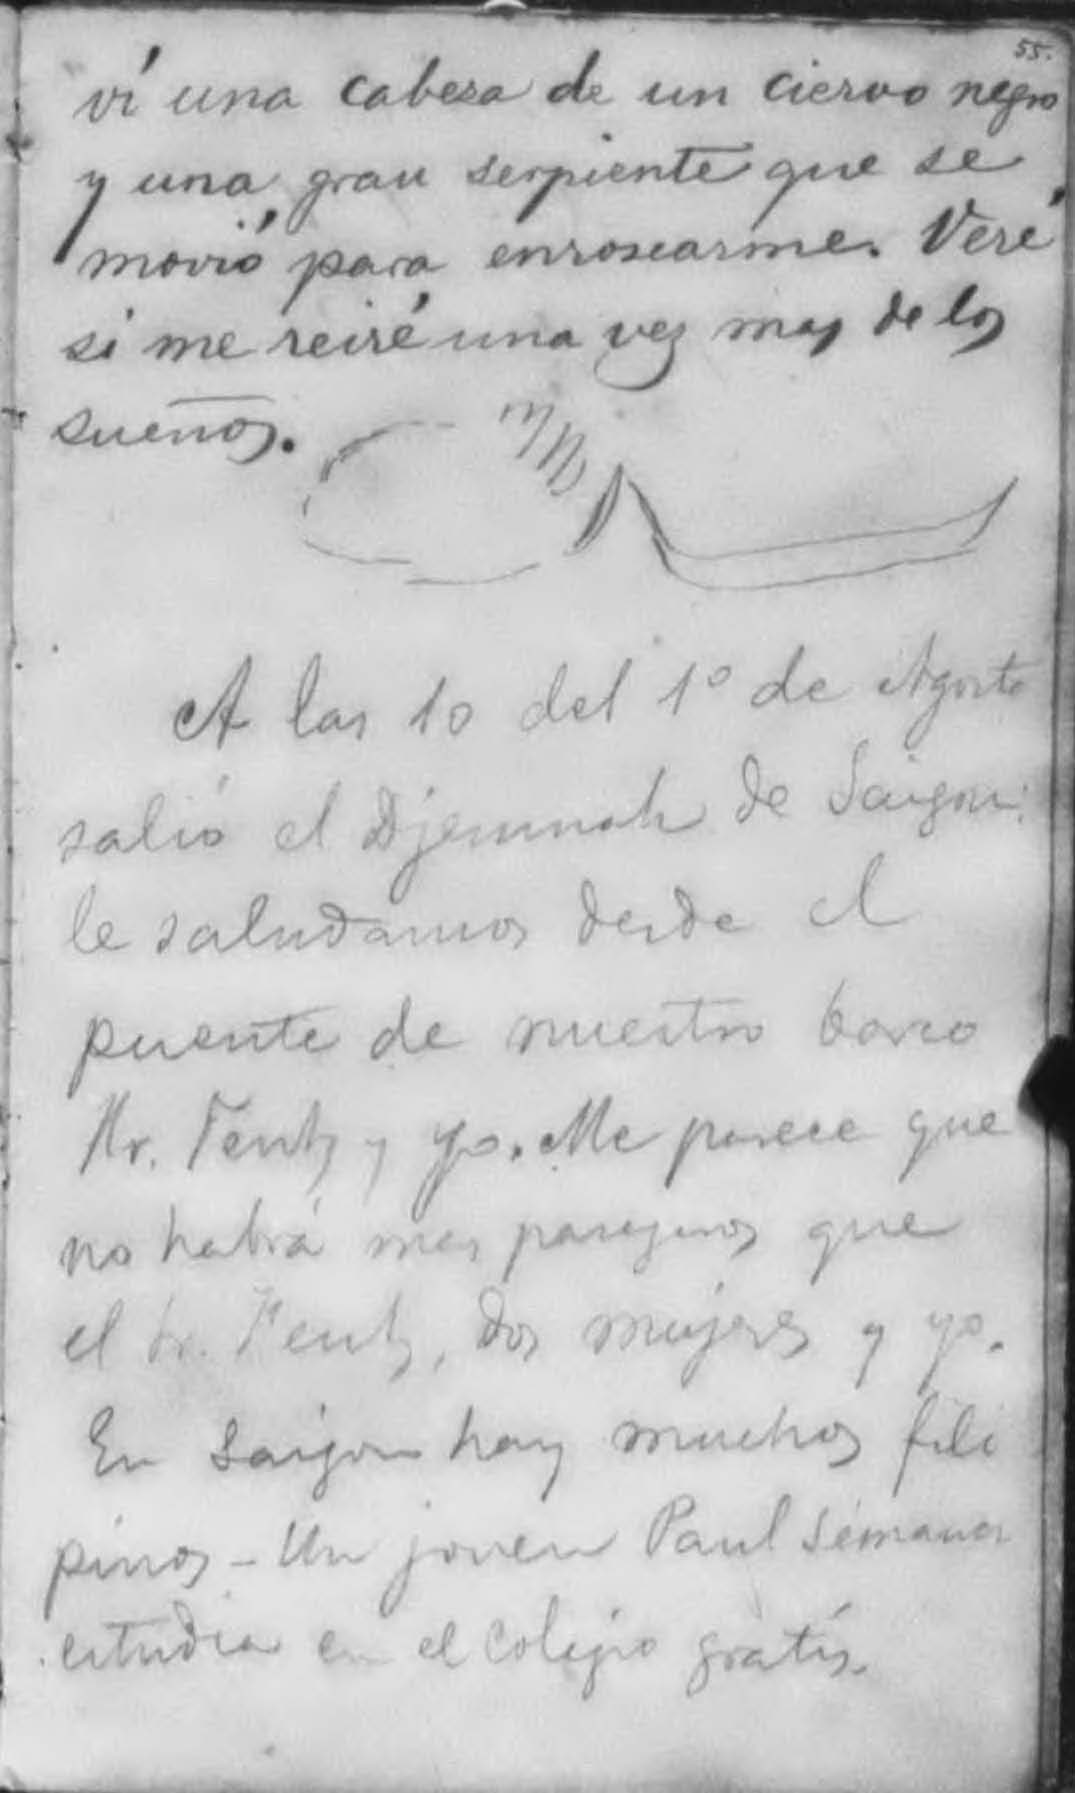 55.
ví una cabeza de un ciervo negro
y una gran serpiente que se
movió para enroscarme. Veré
si me reiré una vez mas de los
sueños.
A las 10 del 1º de Agosto
salió el Djemnah de Saigon:
le saludamos desde el
puente de nuestro barco
Mr. Fentz y yo. Me parece que
no habrá mas pasajeros que
el Sr. Fentz, dos mujeres y yo.
En Saigon hay muchos fili
pinos - Un joven Paul
estudia en el colegio gratis.